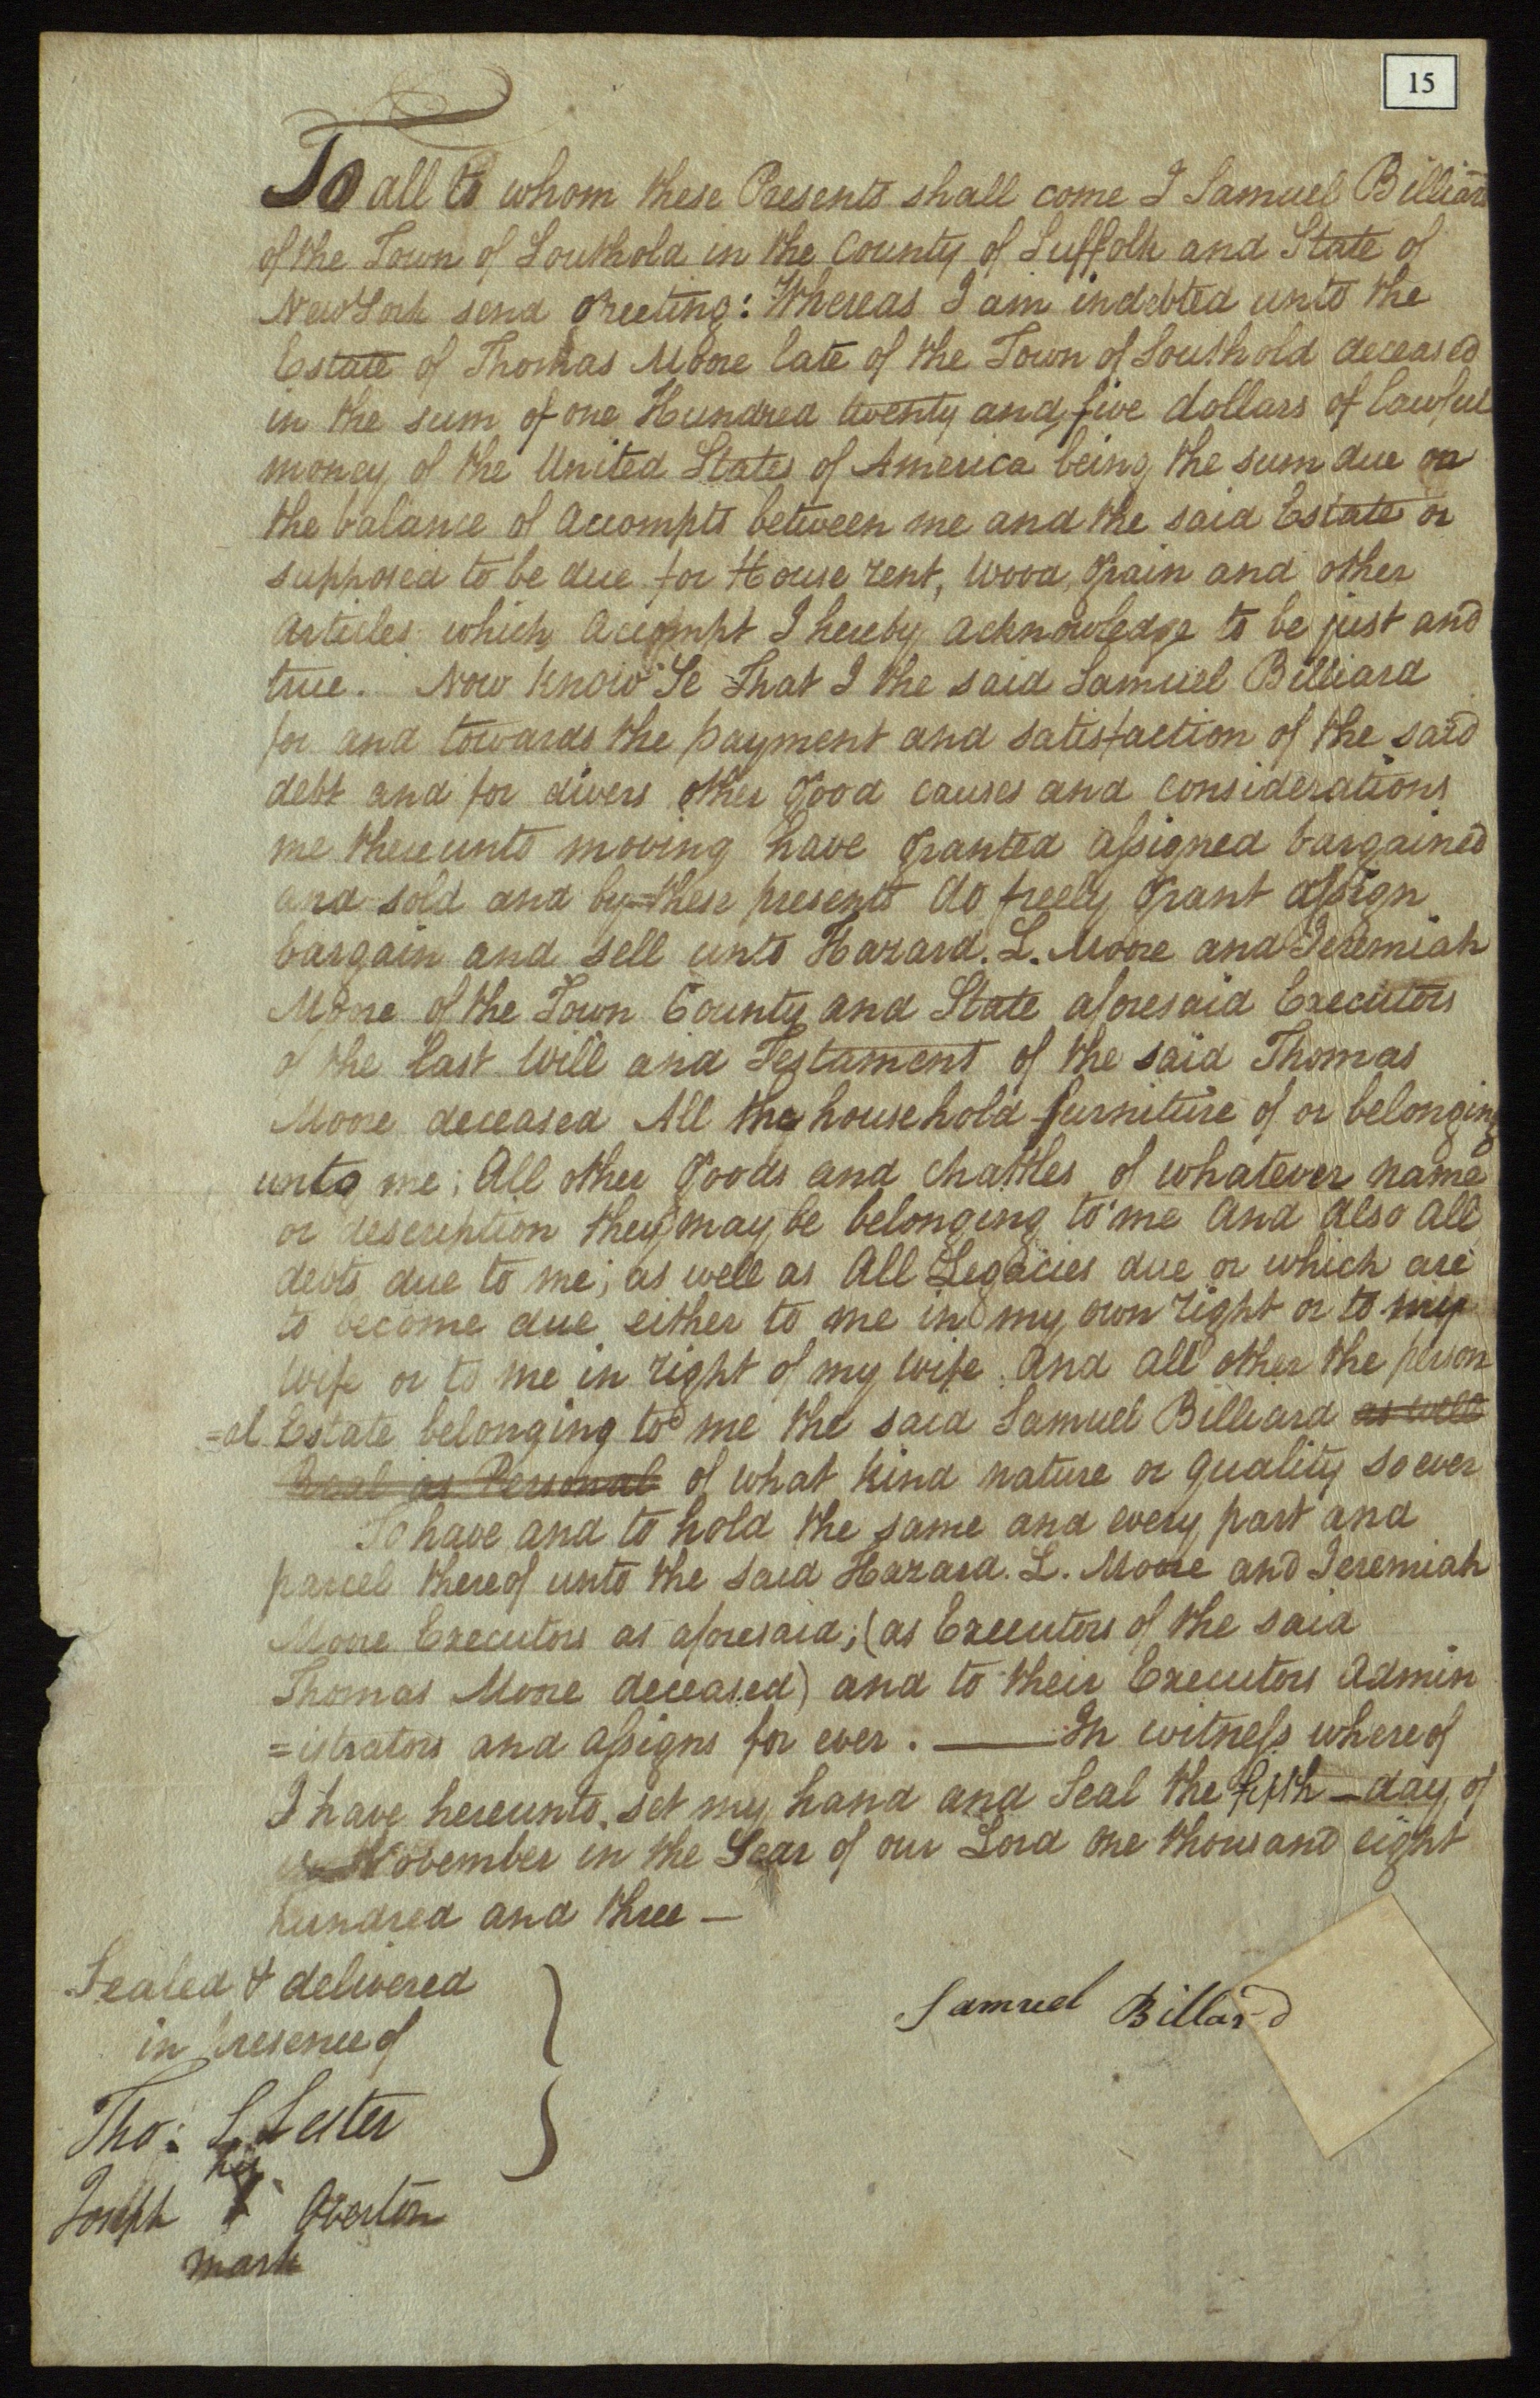 15
To all to whom these Presents shall come I Samuel Billiard
of the Town of Southold in the County of Suffolk and State of
New York send Greeting: Whereas I am indebted unto the
Estate of Thomas Moore late of the Town of Southold deceased
in the sum of one Hundred twenty and five dollars of lawful
money of the United States of America being the sum due on
the balance of Accompts between me and the said Estate or
supposed to be due for House rent, Wood, Grain and other
Articles which Accompt I hereby acknowledge to be just and
true. Now Know Ye That I the said Samuel Billiard
for and towards the payment and satisfaction of the said
debt and for divers other Good causes and considerations
me thereunto moving have Granted assigned bargained
and sold and by these presents do freely Grant assign
bargain and sell unto Hazard. L. Moore and Jeremiah
Moore of the Town County and State aforesaid Executors
of the last Will and Testament of the said Thomas
Moore deceased All the household furniture of or belonging
unto me; All other Goods and Chattles of whatever name
or description they may be belonging to me And also all
debts due to me; as well as All Legacies due or which are
to become due either to me in my own right or to my
wife or to me in right of my wife And all other the person
=al Estate belonging to me the said Samuel Billiard as well
Real as Personal of what kind nature or quality so ever
To have and to hold the same and every part and
parcel thereof unto the said Hazard. L. Moore and Jeremiah
Moore Executors as aforesaid; (as Executors of the said
Thomas Moore deceased) and to their Executors Admin
=istrators and assigns for ever. — In witness whereof
I have hereunto set my hand and Seal the fifth — day of
November in the Year of our Lord one thousand eight
hundred and three —
Sealed & delivered
in presence of
Samuel Billard
Tho: L Lester
his
Joseph X Overton
mark